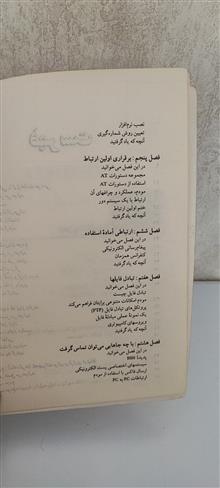 نصب نرم‌افزار
تعیین روش شماره‌گیری
آنچه که یاد گرفتید
فصل پنجم: برقراری اولین ارتباط
در این فصل می‌خوانید
مجموعه دستورات AT
استفاده از دستورات AT
مودم، عملکرد و چراغهای آن
ارتباط با یک سیستم دور
ختم اولین ارتباط
آنچه که یاد گرفتید
فصل ششم: ارتباطی آمادهٔ استفاده
در این فصل می‌خوانید
پیام‌رسانی الکترونیکی
کنفرانس همزمان
آنچه که یاد گرفتید
فصل هفتم: تبادل فایلها
در این فصل می‌خوانید
تبادل فایل چیست
مودم امکانات متنوعی برایتان فراهم می‌کند
پروتکل‌های تبادل فایل (FTP)
یک نمونهٔ عملی مبادلهٔ فایل
ویروسهای کامپیوتری
آنچه که یاد گرفتید
فصل هشتم: با چه جاهایی می‌توان تماس گرفت
در این فصل می‌خوانید
پدیدهٔ BBS
سیستمهای اختصاصی پست الکترونیکی
ارسال فاکس با استفاده از مودم
ارتباطات PC به PC